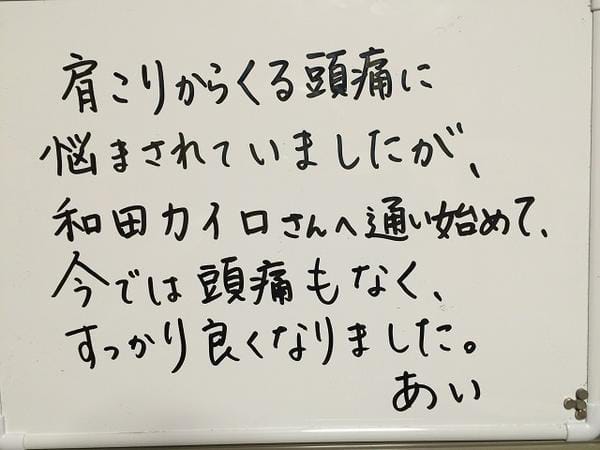 肩こりからくる頭痛に
悩まされていましたが、
和田カイロさんへ通い始めて、
今では頭痛もなく、
すっかり良くなりました。
あい